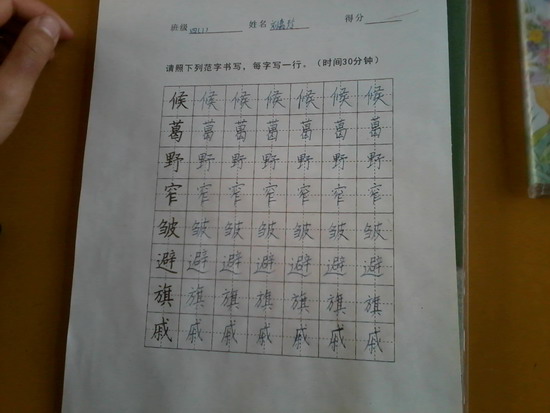 班级 四(1) 姓名 得分
请照下列范字书写，每字写一行。（时间30分钟）
候 候 候 候 候 候 候
葛 葛 葛 葛 葛 葛 葛
野 野 野 野 野 野 野
窄 窄 窄 窄 窄 窄 窄
皱 皱 皱 皱 皱 皱 皱
避 避 避 避 避 避 避
旗 旗 旗 旗 旗 旗 旗
戚 戚 戚 戚 戚 戚 戚